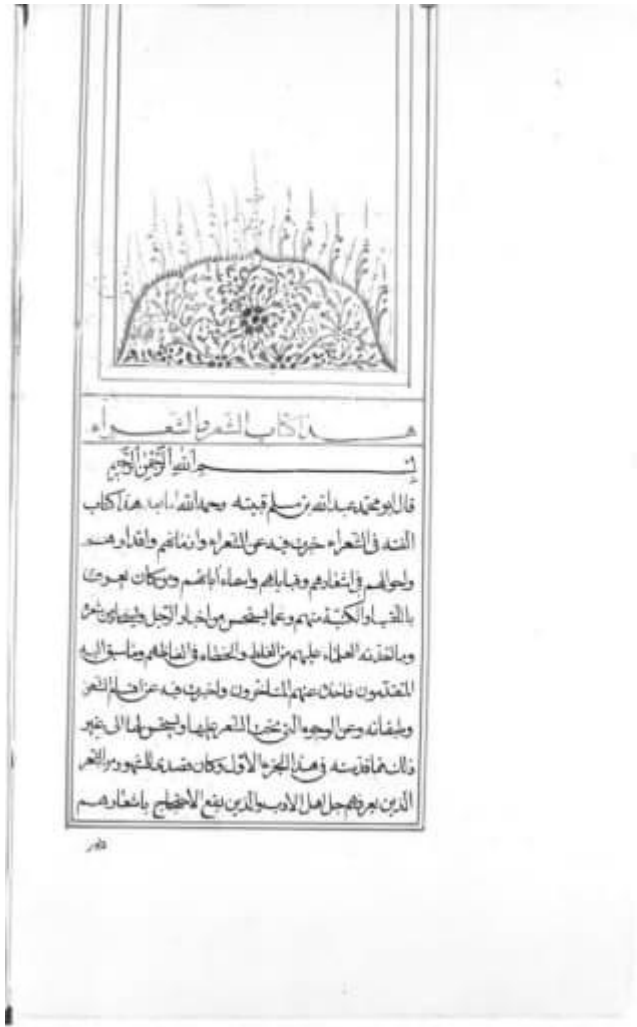 هذا كتاب الشعر والشعراء
بسم الله الرحمن الرحيم
قال ابو محمد عبدالله بن مسلم قتيبه رحمه الله هذا كتاب
الفته فى الشعراء خبرت فيه عن الشعراء وازمانهم واقدارهم
واحوالهم فى اشعارهم وقبايلهم واسماء ابائهم ومن كان يعرف
باللقب او الكنية منهم وعما يستحسن من اخبار الرجل ويستجاد من شعره
وما اخذته العلماء عليهم من الغلط والخطاء فى الفاظهم وما سبق اليه
المتقدمون فاخذه عنهم المتاخرون واخبرت فيه عن اقسام الشعر
وطبقاته وعن الوجوه التى يختار الشعر عليها ويستحسن لها الى غير
ذلك مما قدمته فى هذا الجزء الاول وكان قصدى للمشهورين من الشعراء
الذين يعرفهم جل اهل الادب والذين يقع الاحتجاج باشعارهم